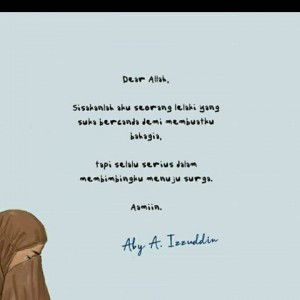 Dear Allah,
Sisakanlah aku seorang lelaki yang
suka bercanda demi membuatku
bahagia,
tapi selalu serius dalam
membimbingku menuju surga.
Aamiin.
Aby A. Izzuddin